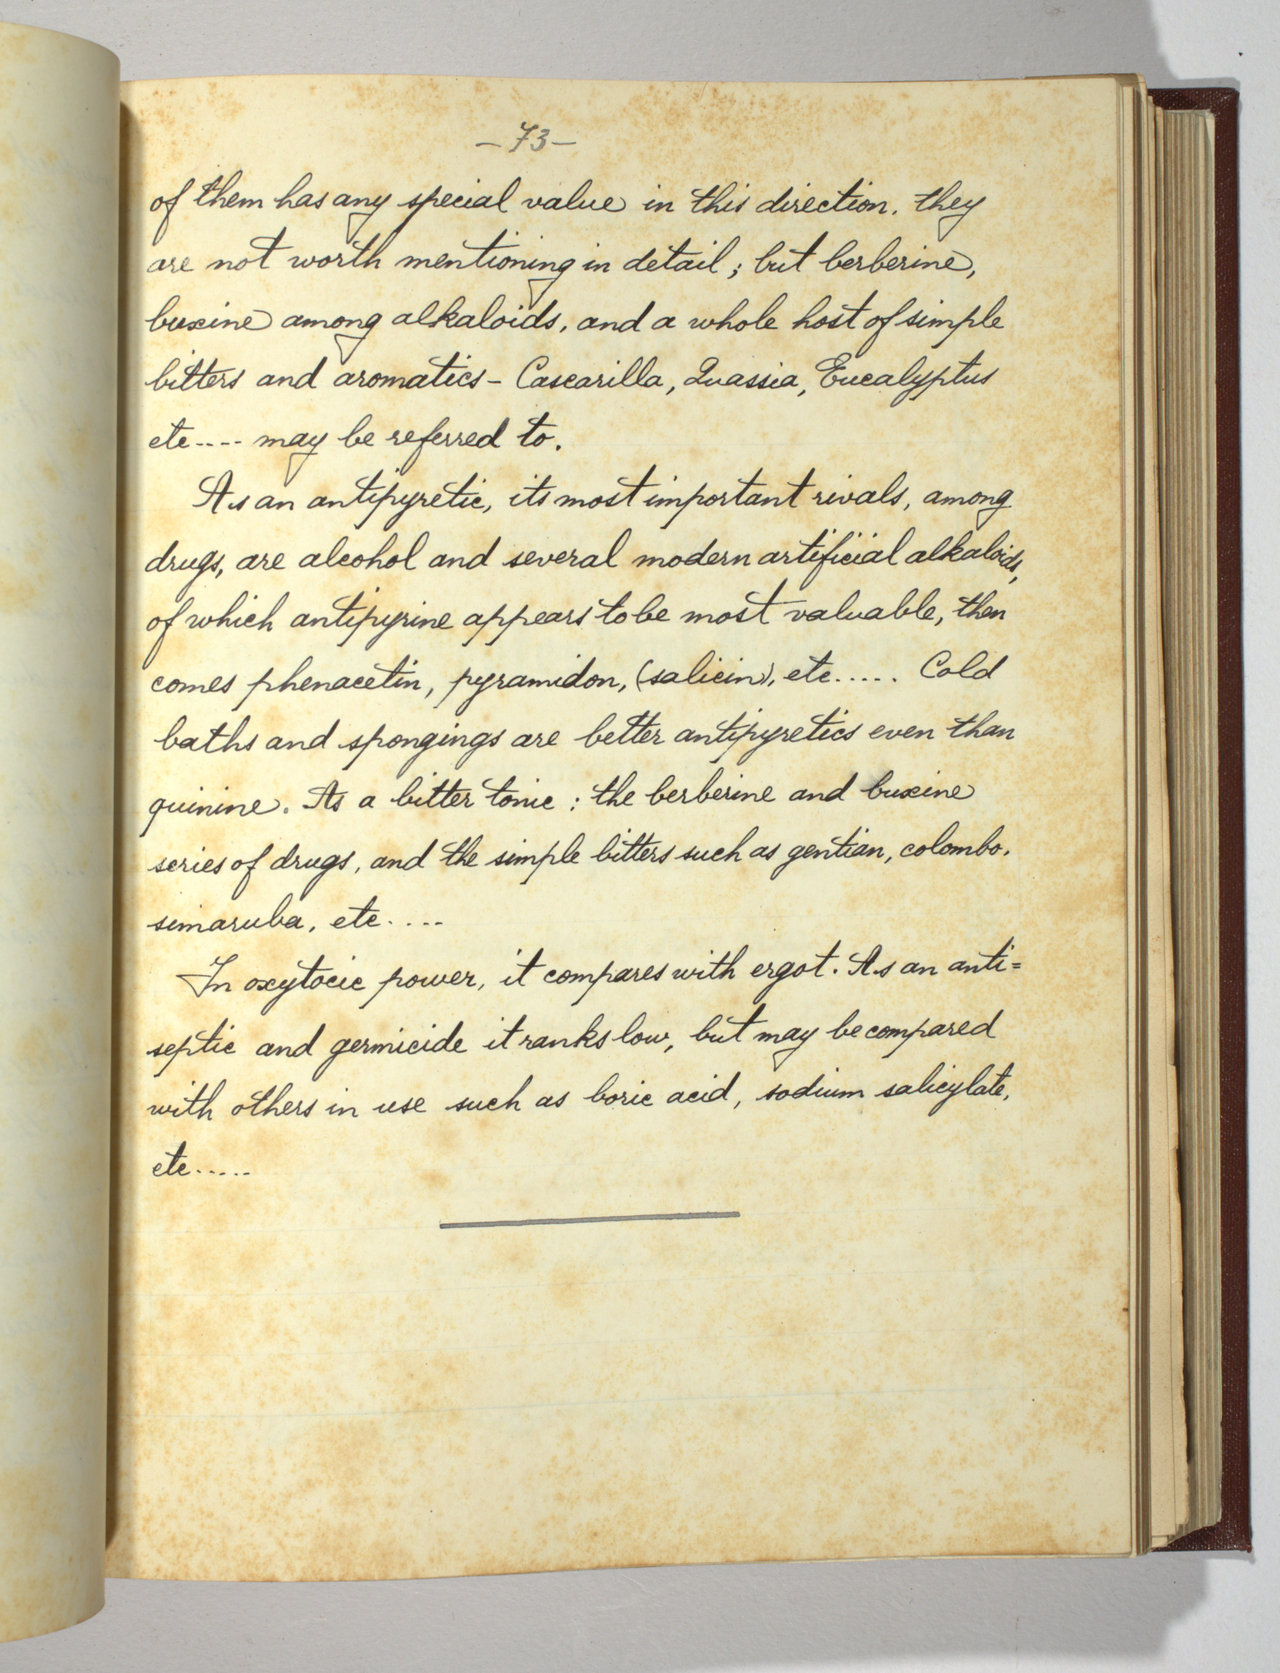 — 73 —
of them has any special value in this direction. they
are not worth mentioning in detail; but berberine,
buxine among alkaloids, and a whole host of simple
bitters and aromatics - Cascarilla, Quassia, Eucalyptus
etc.... may be referred to.
As an antipyretic, its most important rivals, among
drugs, are alcohol and several modern artificial alkaloids,
of which antipyrine appears to be most valuable, then
comes phenacetin, pyramidon, (salicin), etc..... Cold
baths and spongings are better antipyretics even than
quinine. As a bitter tonic: the berberine and buxine
series of drugs, and the simple bitters such as gentian, colombo.
simaruba, etc....
In oxytocic power, it compares with ergot. As an anti=
septic and germicide it ranks low, but may be compared
with others in use such as boric acid, sodium salicylate,
etc.....